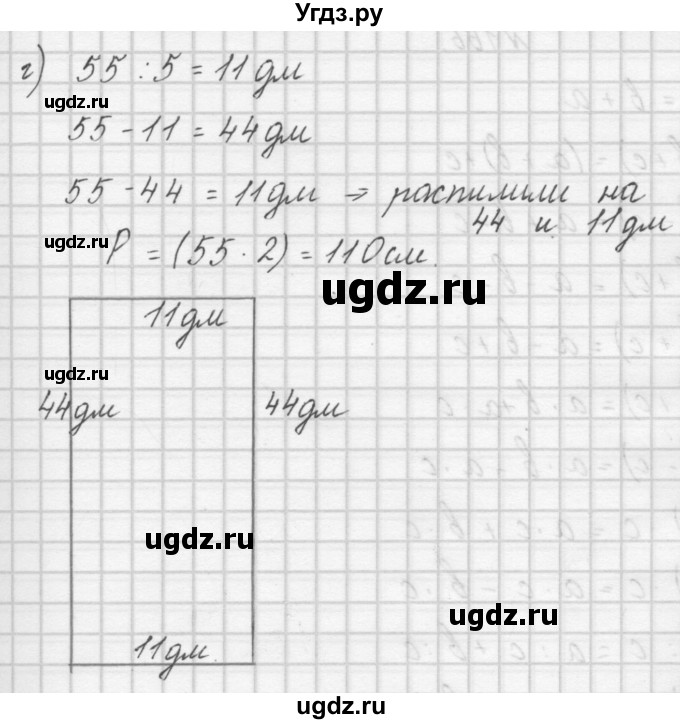 Угдз.ру
г) 55 : 5 = 11 дм
ugdz.ru
55 - 11 = 44 дм
55 - 44 = 11 дм ⇒ распилили на
44 и 11 дм
ugdz.ru
P = (55 · 2) = 110 см.
ugdz.ru
11 дм
ugdz.ru
44 дм
44 дм
ugdz.ru
ugdz.ru
11 дм.
ugdz.ru